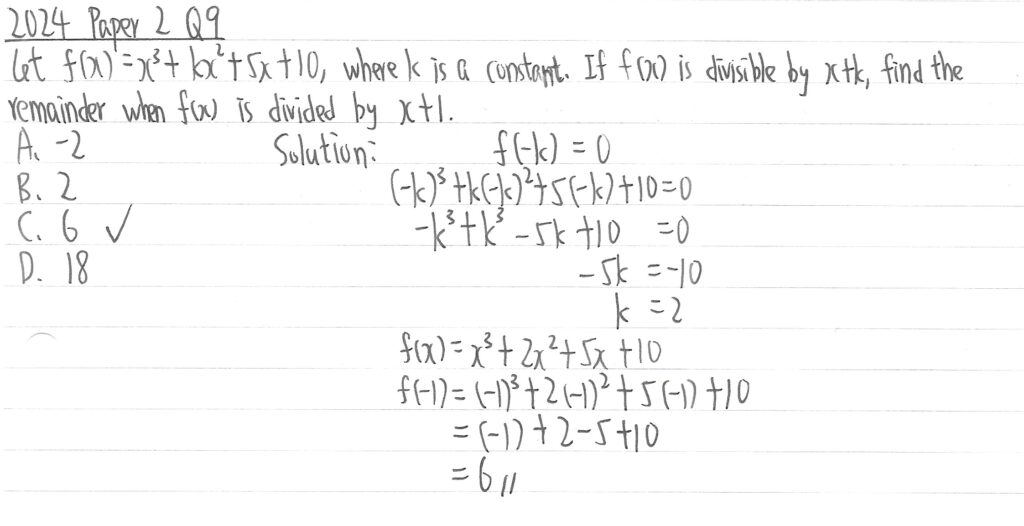 2024 Paper 2 Q9
Let f(x) = x³ + kx² + 5x + 10, where k is a constant. If f(x) is divisible by x+k, find the
remainder when f(x) is divided by x+1.
A. -2
B. 2
C. 6 ✓
D. 18
Solution: f(-k) = 0
(-k)³ + k(-k)² + 5(-k) + 10 = 0
-k³ + k³ - 5k + 10 = 0
-5k = -10
k = 2
f(x) = x³ + 2x² + 5x + 10
f(-1) = (-1)³ + 2(-1)² + 5(-1) + 10
= (-1) + 2 - 5 + 10
= 6 //